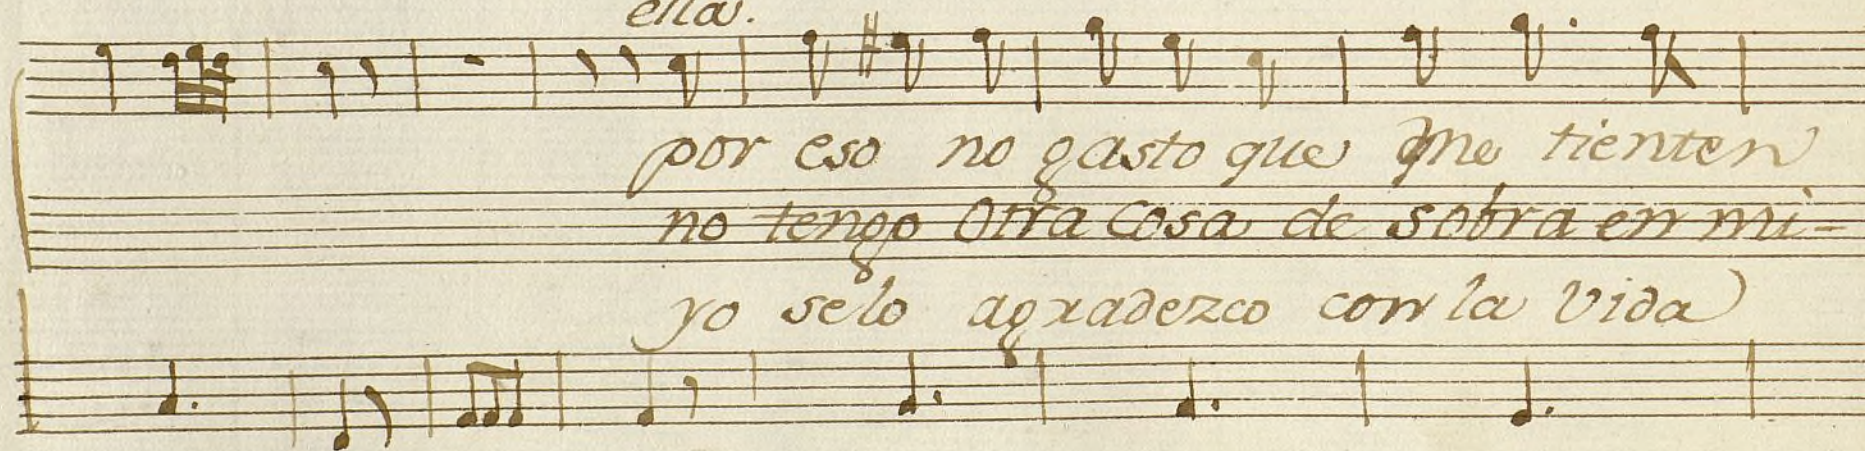 ella.
por eso no gasto que me tienten
no tengo Otra Cosa de sobra en mi=
yo selo agradezco con la Vida